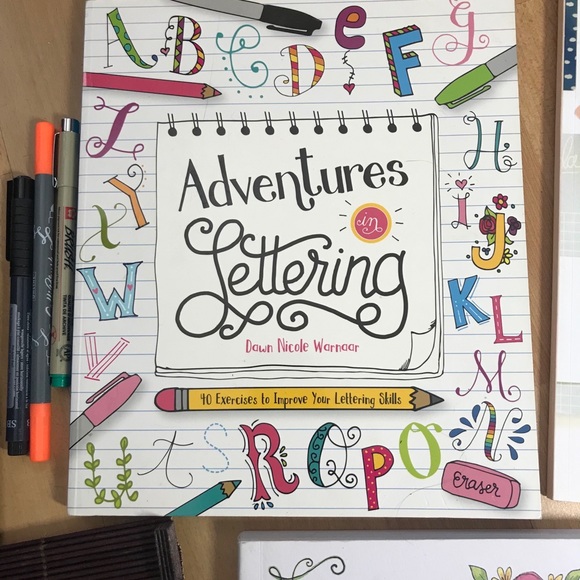 A B C D e F G
H
I
J
K L
M
N
O
P
Q
R
S
t
U
V
W
X
Y
Z
Adventures
in
Lettering
Dawn Nicole Warnaar
40 Exercises to Improve Your Lettering Skills
eraser